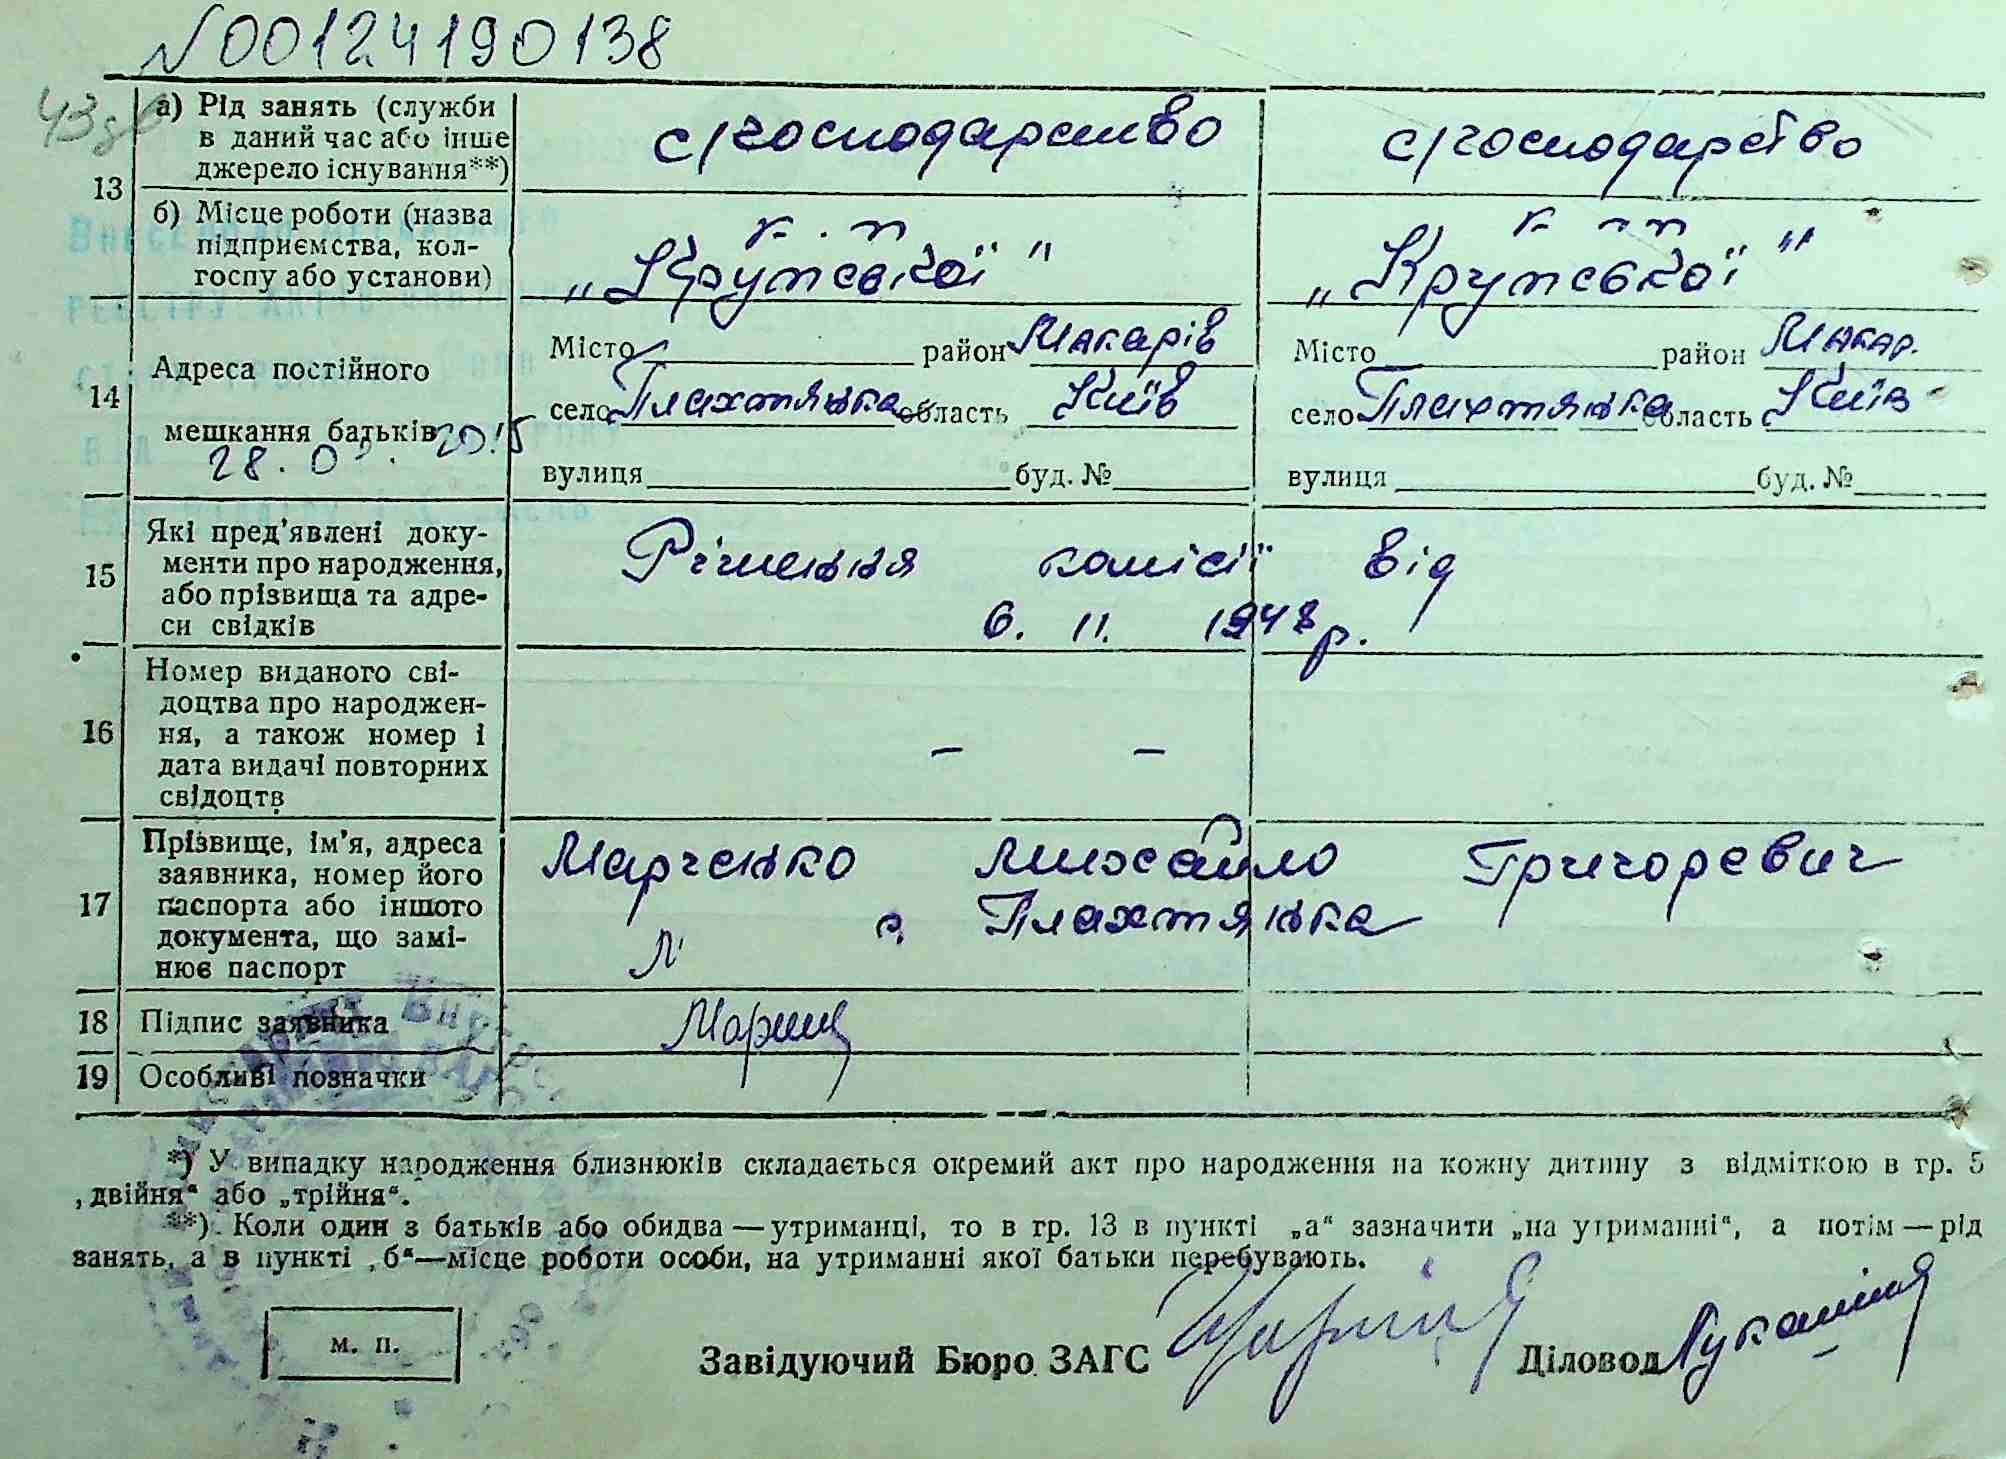 N00124190138
13
а) Рід занять (служби
в даний час або інше
джерело існування**)
с/господарство
с/господарство
б) Місце роботи (назва
підприємства, кол-
госпу або установи)
„Крупської"
„Крупської"
14
Адреса постійного
мешкання батьків
Місто район Макарів
село Плахтянка область Київ
вулиця буд. №
Місто район Макар.
село Плахтянка область Київ
вулиця буд. №
15
Які пред'явлені доку-
менти про народження,
або прізвища та адре-
си свідків
Рішення комісії від
6. 11. 1948 р.
16
Номер виданого сві-
доцтва про народжен-
ня, а також номер і
дата видачі повторних
свідоцтв
– –
17
Прізвище, ім'я, адреса
заявника, номер його
паспорта або іншого
документа, що замі-
нює паспорт
Марченко Михайло Григоревич
с. Плахтянка
18
Підпис заявника
19
Особливі позначки
*) У випадку народження близнюків складається окремий акт про народження на кожну дитину з відміткою в гр. 5
„двійня“ або „трійня“.
**) Коли один з батьків або обидва — утриманці, то в гр. 13 в пункті „а“ зазначити „на утриманні“, а потім — рід
занять, а в пункті „б“—місце роботи особи, на утриманні якої батьки перебувають.
м. п.
Завідуючий Бюро ЗАГС
Діловод